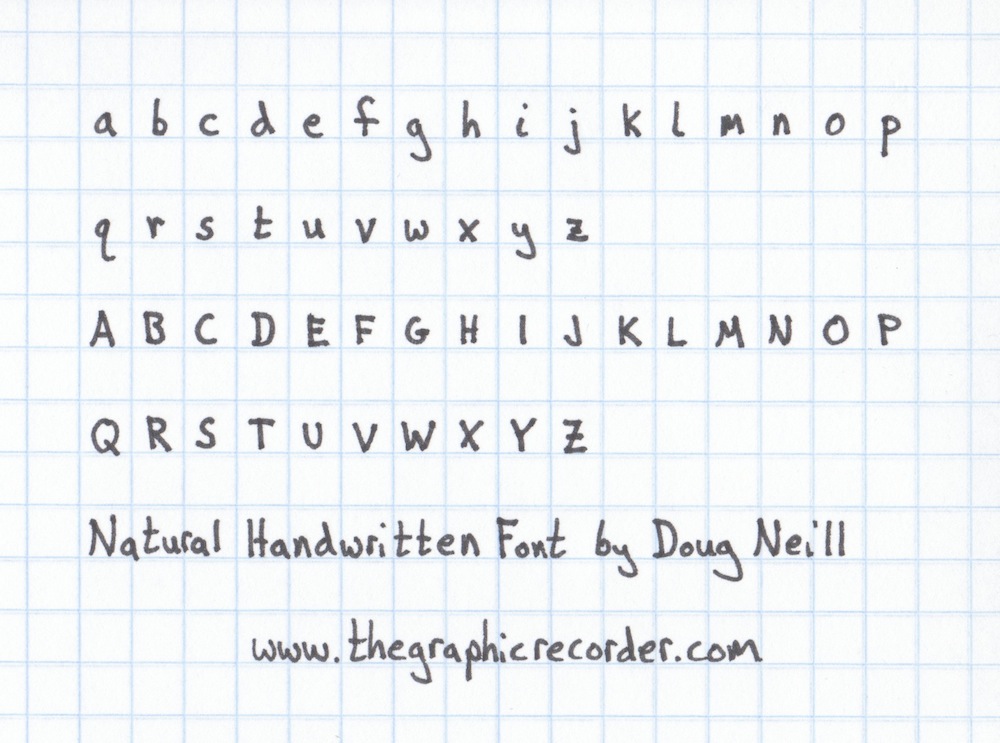 a b c d e f g h i j k l m n o p
q r s t u v w x y z
A B C D E F G H I J K L M N O P
Q R S T U V W X Y Z
Natural Handwritten Font by Doug Neill
www.thegraphicrecorder.com